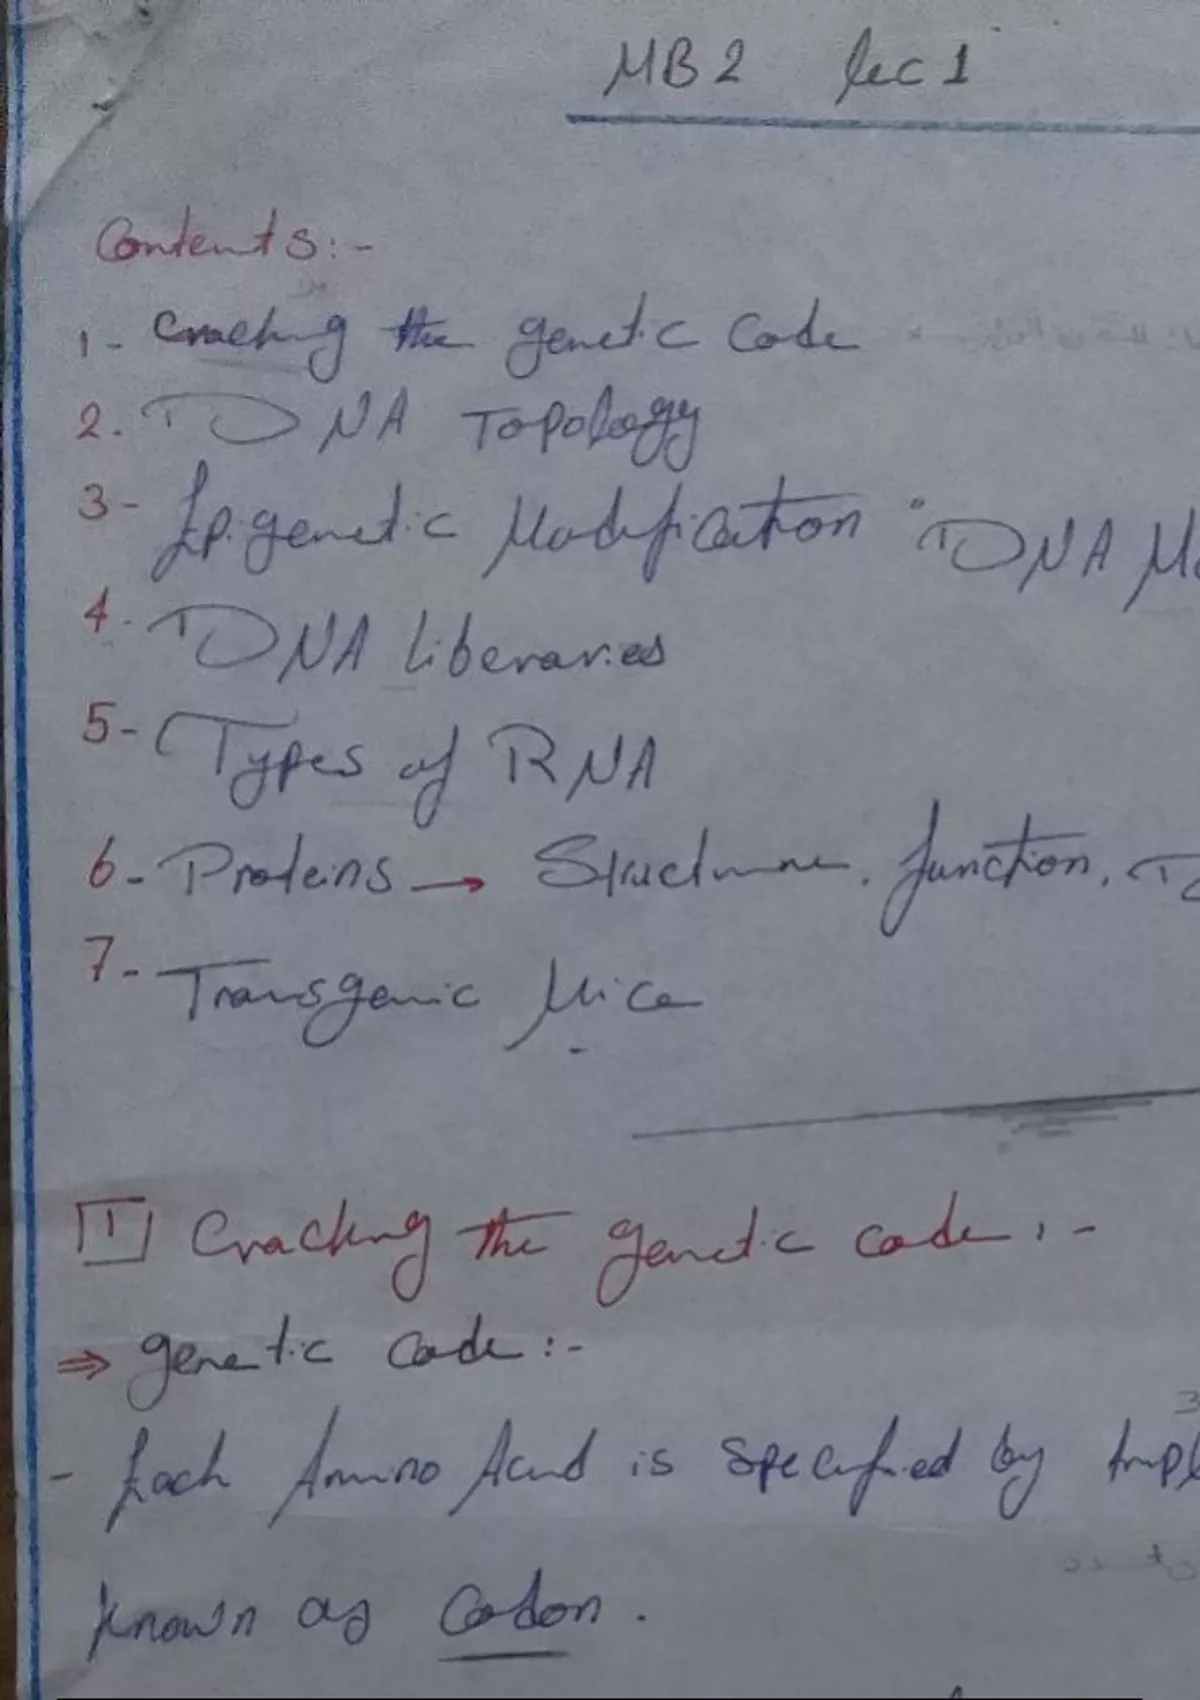 MB2 lec 1
Contents:-
1- Cracking the genetic Code
2. DNA Topology
3- Epigenetic Modification "DNA M
4. DNA Liberaries
5- Types of RNA
6- Proteins → Structure, function,
7- Transgenic Mice
1 Cracking the genetic code:-
⇒ genetic code:-
- Each Amino Acid is specified by tripl
known as Codon.